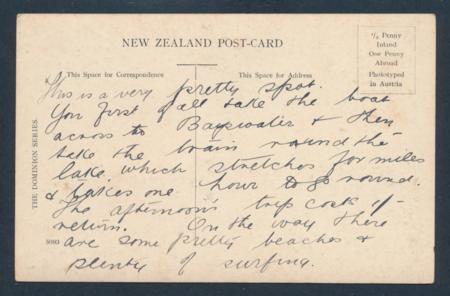 NEW ZEALAND POST-CARD
½ Penny
Inland
One Penny
Abroad
Phototyped
in Austria
This Space for Correspondence
This Space for Address
THE DOMINION SERIES.
This is a very pretty spot.
You first of all take the boat
across to Bayswater & then
take the train round the
lake, which stretches for miles
& takes one hour to go round.
The afternoon's trip cost 1/-
return. On the way there
are some pretty beaches &
plenty of surfing.